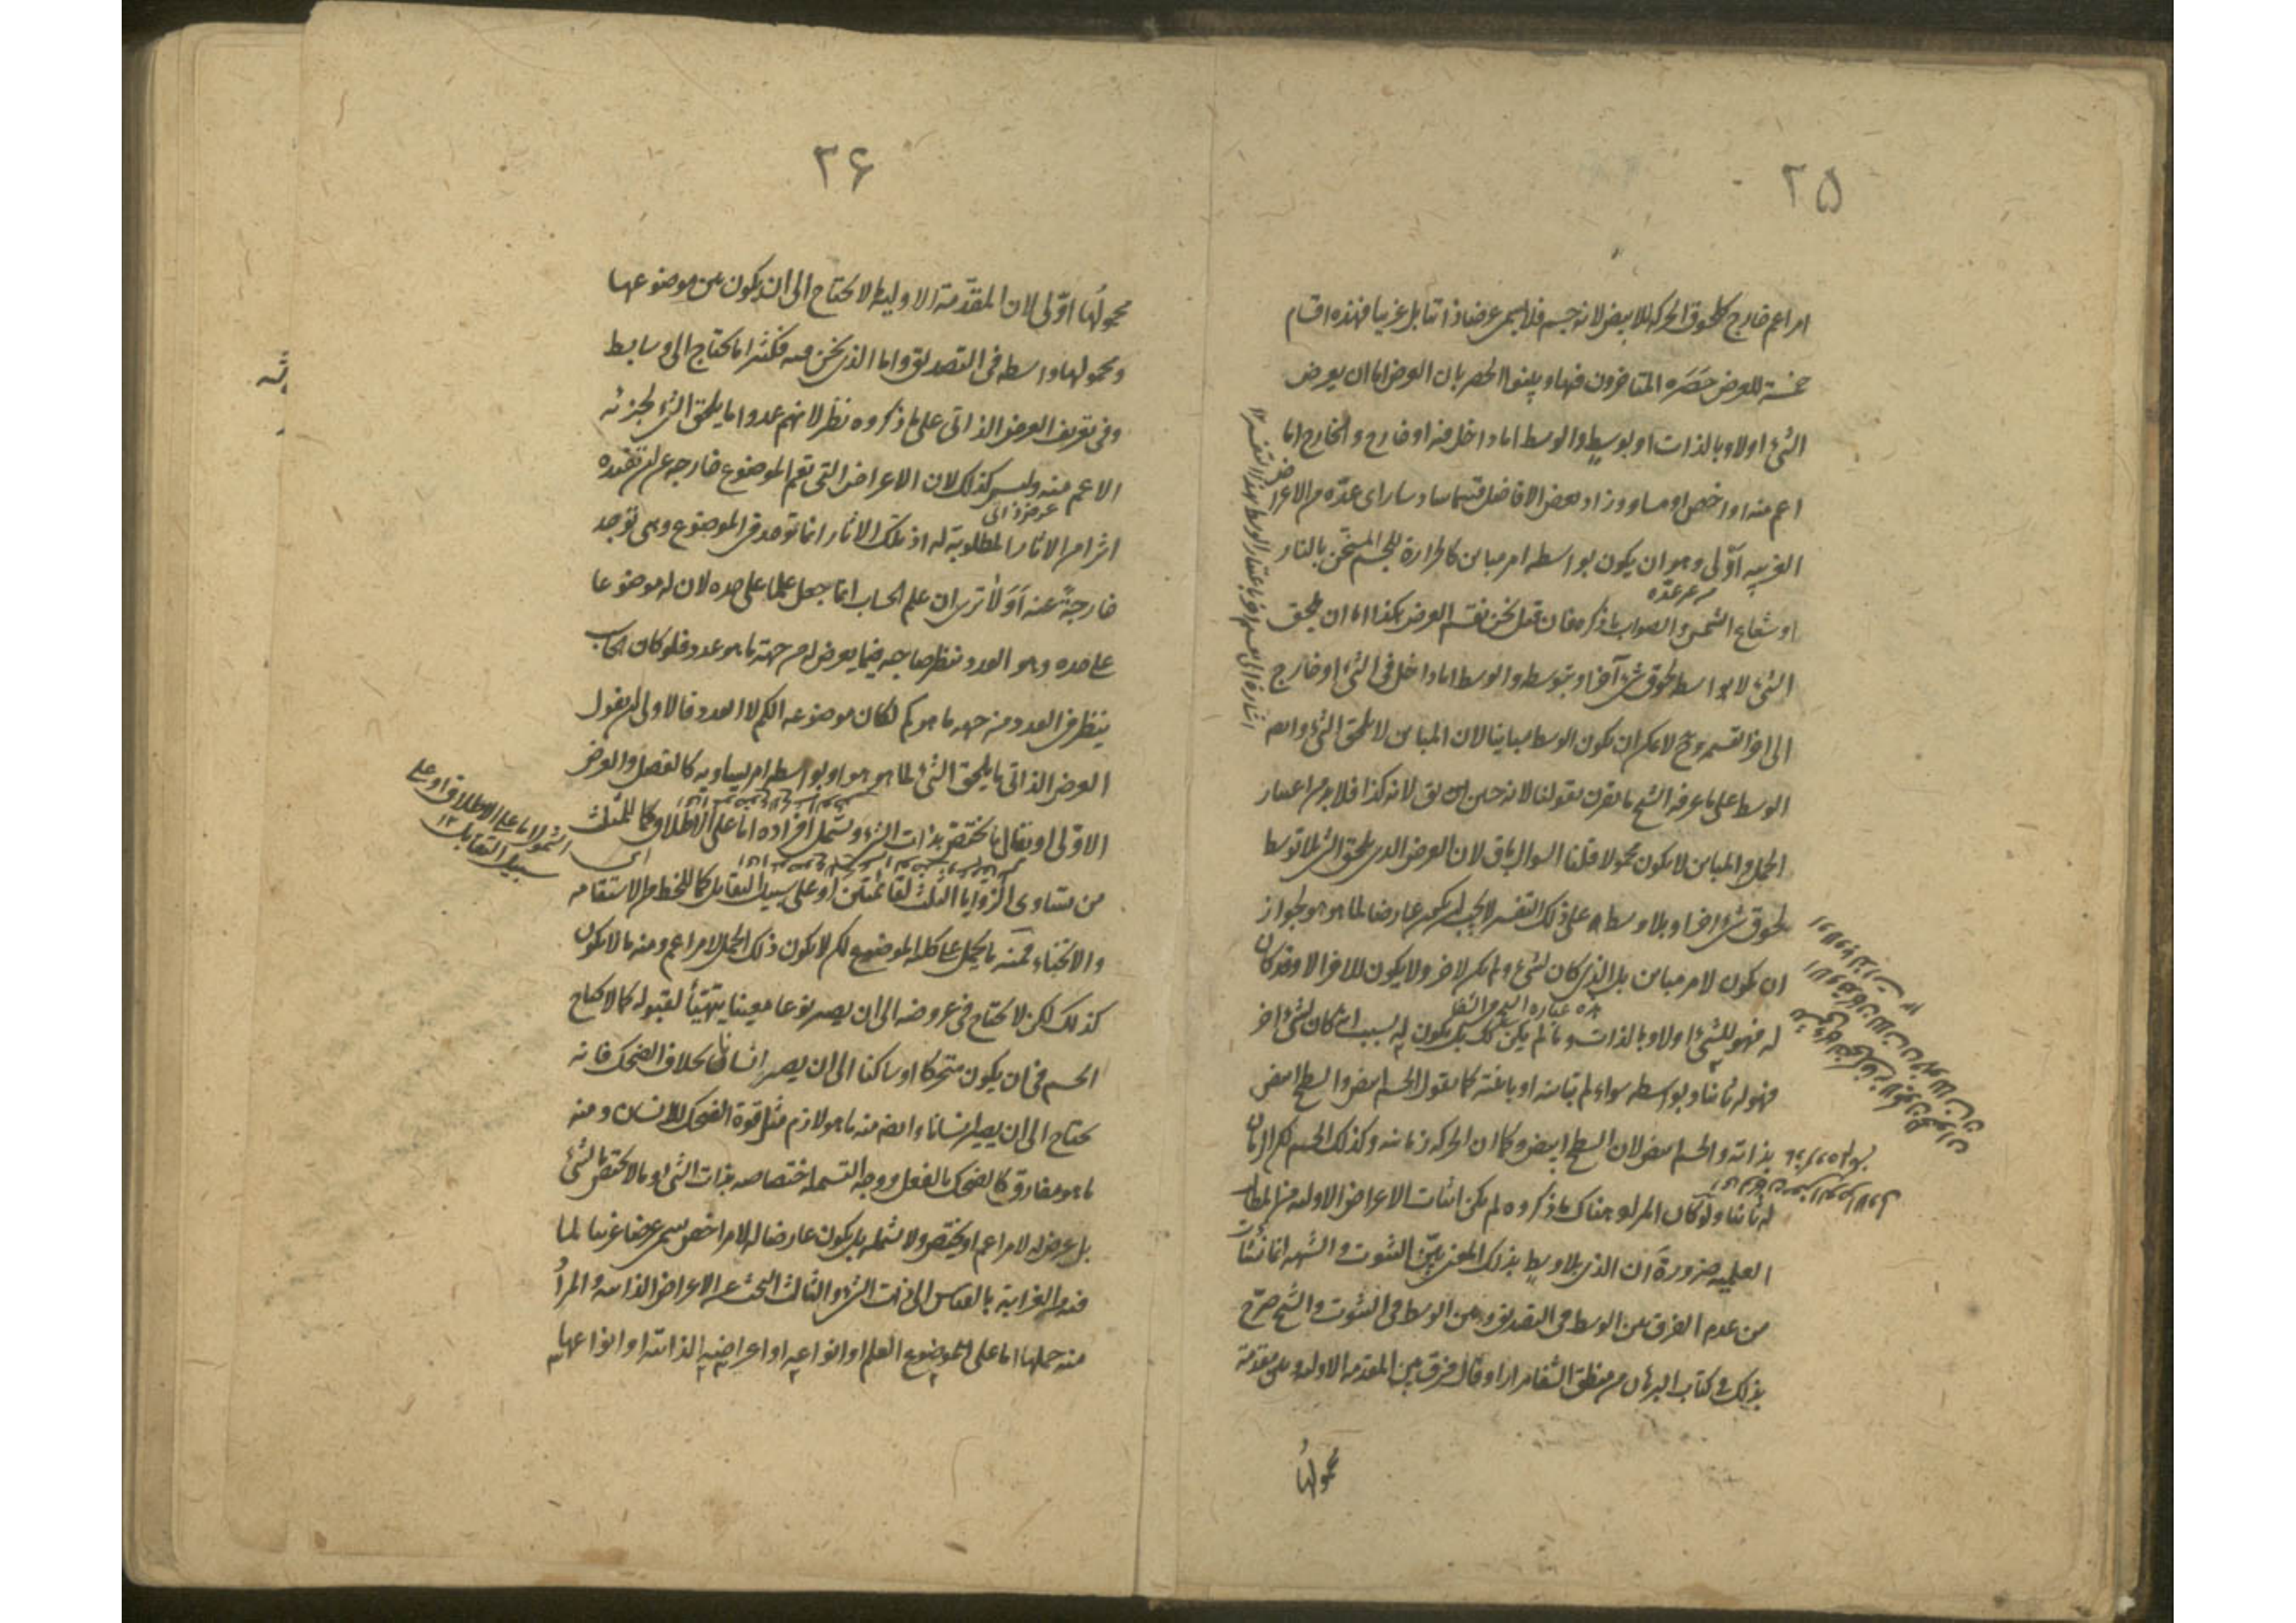 ٢٥
امر اعم خارج كلحوق الحركة للابيض لانه جسم فلا يسمى عرضا ذاتيا بل غريبا فهذه اقسام
خمسة للعرض حَصَره المتأخرون فيها وبينوا الحصر بان العرض اما ان يعرض
الشئ اولا وبالذات او بوسط والوسط اما داخل فيه او خارج والخارج اما
اعم منه او اخص او مساو وزاد بعض الافاضل قسما سادسا راى عدّه من الاعراض
الغريبة اَوْلى وهو ان يكون بواسطة امر مباين كالحرارة للجسم المسخّن بالنار
او شعاع الشمس والصواب ما ذكره فان قيل نحن نقسم العرض هكذا اما ان يلحق
الشئ لا بواسطة لحوق شئ آخر او بتوسطه والوسط اما داخل فى الشئ او خارج
الى اخر القسمة وح لا يمكن ان يكون الوسط مباينا لان المباين لا يلحق الشئ وايضا
الوسط على ما عرفه الشيخ ما يقرن بقولنا لانه حين يق لانه كذا فلا بد من اعتبار
الحمل والمباين لا يكون محمولا قلنا السوال باق لان العرض الذى يلحق الشئ بلا توسط
لحوق شئ اخر او بلا وسط على ذلك التفسير لا يجب ان يكون عارضا لما هو هو لجواز
ان يكون لامر مباين بل الذى كان لشئ ولم يكن لاخر ولا يكون للاخر الا وقد كان
له فهو للشئ اولا وبالذات وما لم يكن كك بل يكون له بسبب انه كان لشئ اخر
فهو له ثانيا وبواسطة سواء لم تباينه او باينته كما نقول الجسم ابيض والسطح ابيض
بذاته والجسم ابيض لان السطح ابيض وكما ان الحركة زمانية وكذلك الجسم لكن الزمان
له ثانيا ولو كان المراد هناك ما ذكروه لم يكن اثبات الاعراض الاولية من المطالب
العلمية ضرورة ان الذى بلا وسط بذلك المعنى بيّن الثبوت والشبهة انما نشأت
من عدم الفرق بين الوسط فى التصديق وبين الوسط فى الثبوت والشيخ صرّح
بذلك فى كتاب البرهان من منطق الشفا مرارا وقال فرق بين المقدمة الاولية وبين مقدمة
محمولها
اشارة الى
٢۶
محمولُها اوّلى لان المقدّمة الاولية لا يحتاج الى ان يكون بين موضوعها
ومحمولها واسطة فى التصديق واما الذى نحن فيه فكثيرا ما يحتاج الى وسايط
وفى تعريف العرض الذاتى على ما ذكروه نظر لانهم عدوا ما يلحق الشئ لجزئه
الاعم منه وليس كذلك لان الاعراض التى تعم الموضوع خارجة عن ان تفيده
عرض ذاتى
اثرا من الاثار المطلوبة له اذ تلك الاثار انما توجد فى الموضوع وهى توجد
خارجةً عنه اَوَلا ترى ان علم الحساب انما جعل علما على حده لان له موضوعا
على حده وهو العدد فينظر صاحبه فيما يعرض له من جهة ما هو عدد فلو كان الحاسب
ينظر فى العدد من جهة ما هو كم لكان موضوعه الكم لا العدد فالاولى ان يقول
العرض الذاتى ما يلحق الشئ لما هو هو او بواسطة امر يساويه كالفصل والعرض
الاولى او نقال ما يختص بذات الشئ ويشمل افراده اما على الاطلاق كما للمثلث
من تساوى الزوايا الثلث لقائمتين او على سبيل التقابل كما للخط من الاستقامة
والانحناء فمنه ما يحمل على كلية الموضوع لكن لا يكون ذلك الحمل لامر اعم ومنه ما لا يكون
كذلك لكن لا يحتاج فى عروضه الى ان يصير نوعا معينا يتهيّأ لقبوله كما لا يحتاج
الجسم فى ان يكون متحركا او ساكنا الى ان يصير انسانا بخلاف الضحك فانه
يحتاج الى ان يصير انسانا وايضا منه ما هو لازم مثل قوة الضحك للانسان ومنه
ما هو مفارق كالضحك بالفعل ووجه التسمية اختصاصه بذات الشئ وما لا يختص بالشئ
بل عرض له لامر اعم او يختص ولا يشمله بل يكون عارضا له لامر اخص يسمى عرضا غريبا لما
فيه من الغرابة بالقياس الى ذات الشئ والثالث البحث عن الاعراض الذاتية والمراد
منه حملها اما على موضوع العلم او انواعه او اعراضه الذاتية او انواعها
اى الشمول اما على الاطلاق او على
سبيل التقابل ١٢